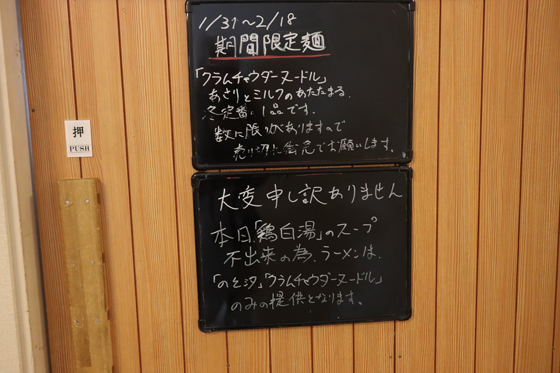 1/31～2/18
期間限定麺
「クラムチャウダーヌードル」
あさりとミルクのあたたまる
冬定番の1品です。
数に限りがありますので
売り切れ御免でお願いします。
押
PUSH
大変申し訳ありません
本日「鶏白湯」のスープ
不出来の為、ラーメンは、
「のど汐」「クラムチャウダーヌードル」
のみの提供となります。